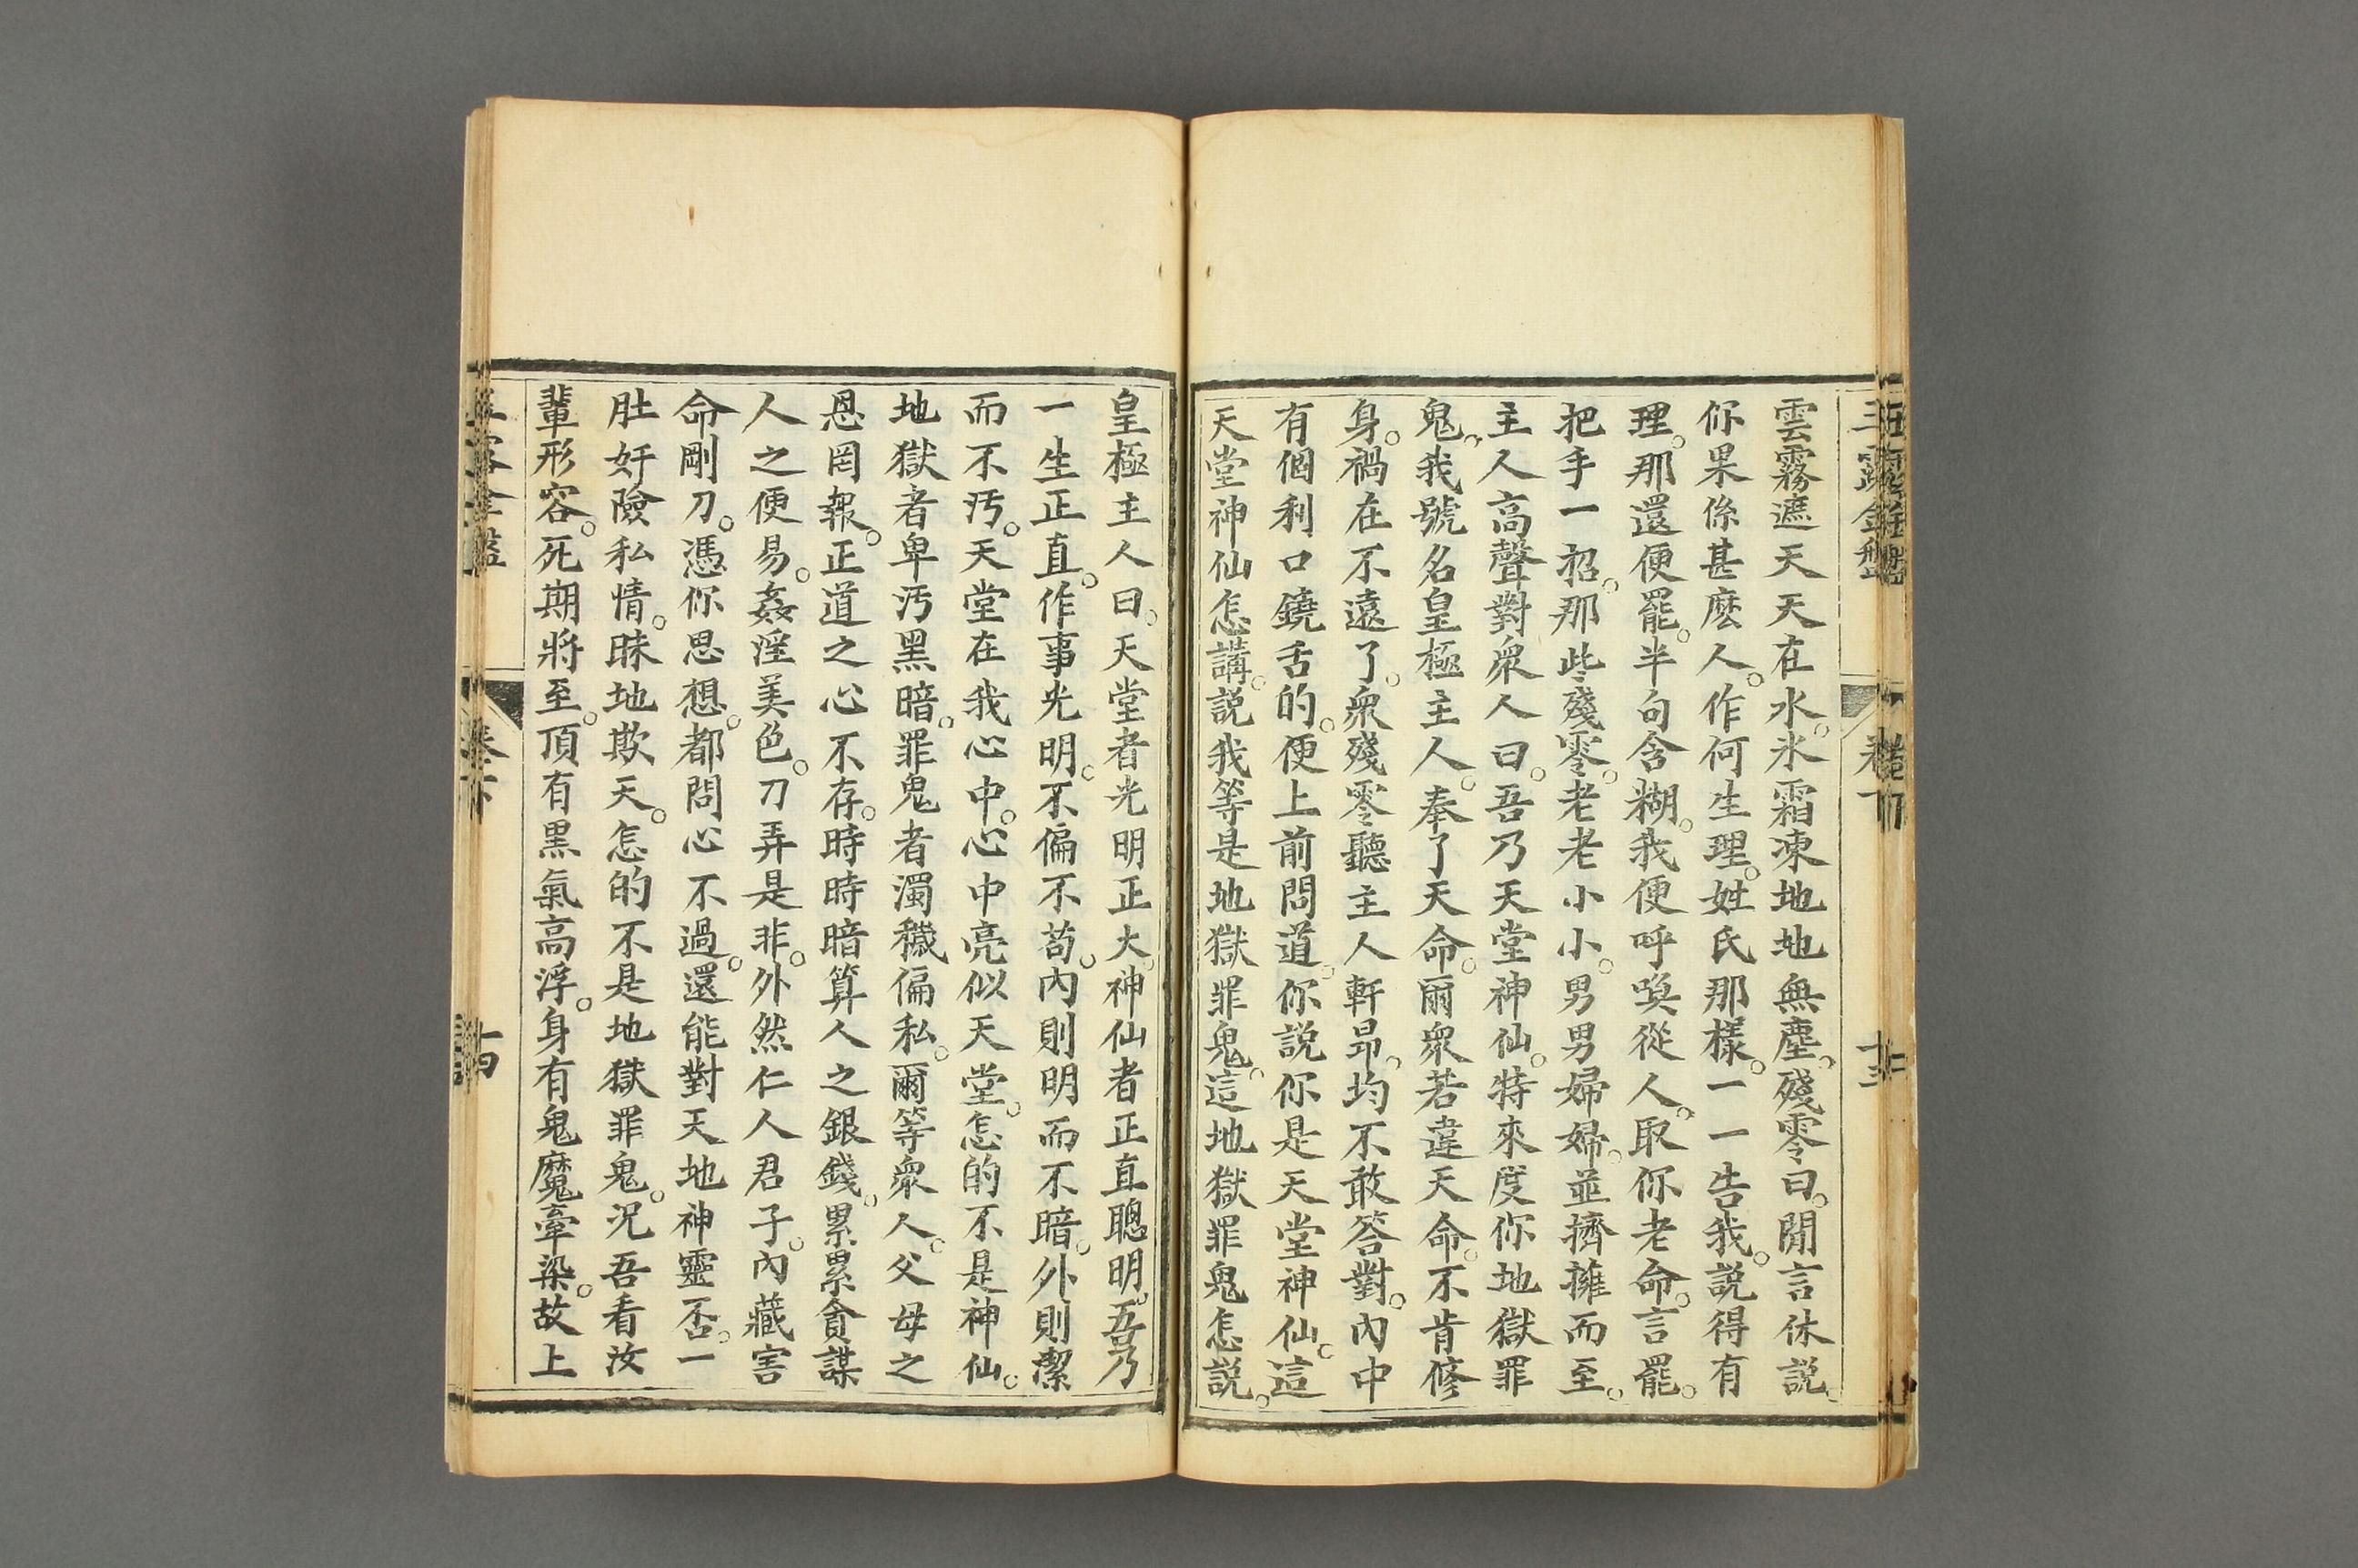 雲霧遮天天在水。氷霜凍地地無塵。殘零曰。閒言休説。
你果係甚麽人。作何生理。姓氏那樣。一一告我。説得有
理。那還便罷。半句含糊。我便呼喚從人。取你老命。言罷。
把手一招。那些殘零。老老小小。男男婦婦。並擠擁而至。
主人高聲對衆人曰。吾乃天堂神仙。特來度你地獄罪
鬼。我號名皇極主人。奉了天命。爾衆若違天命。不肯修
身。禍在不遠了。衆殘零聽主人軒昂。均不敢答對。内中
有個利口鐃舌的。便上前問道。你説你是天堂神仙。這
天堂神仙怎講。説我等是地獄罪鬼。這地獄罪鬼怎説。
皇極主人曰。天堂者光明正大。神仙者正直聰明。吾乃
一生正直。作事光明。不偏不苟。内則明而不暗。外則潔
而不汚。天堂在我心中。心中亮似天堂。怎的不是神仙。
地獄者卑汚黑暗。罪鬼者濁穢偏私。爾等衆人。父母之
恩罔報。正道之心不存。時時暗算人之銀錢。累累貪謀
人之便易。姦淫美色。刀弄是非。外然仁人君子。内藏害
命剛刀。憑你思想。都問心不過。還能對天地神靈否。一
肚奸險私情。昧地欺天。怎的不是地獄罪鬼。况吾看汝
輩形容。死期將至。頂有黑氣高浮。身有鬼魔牽染。故上
卷下
十四